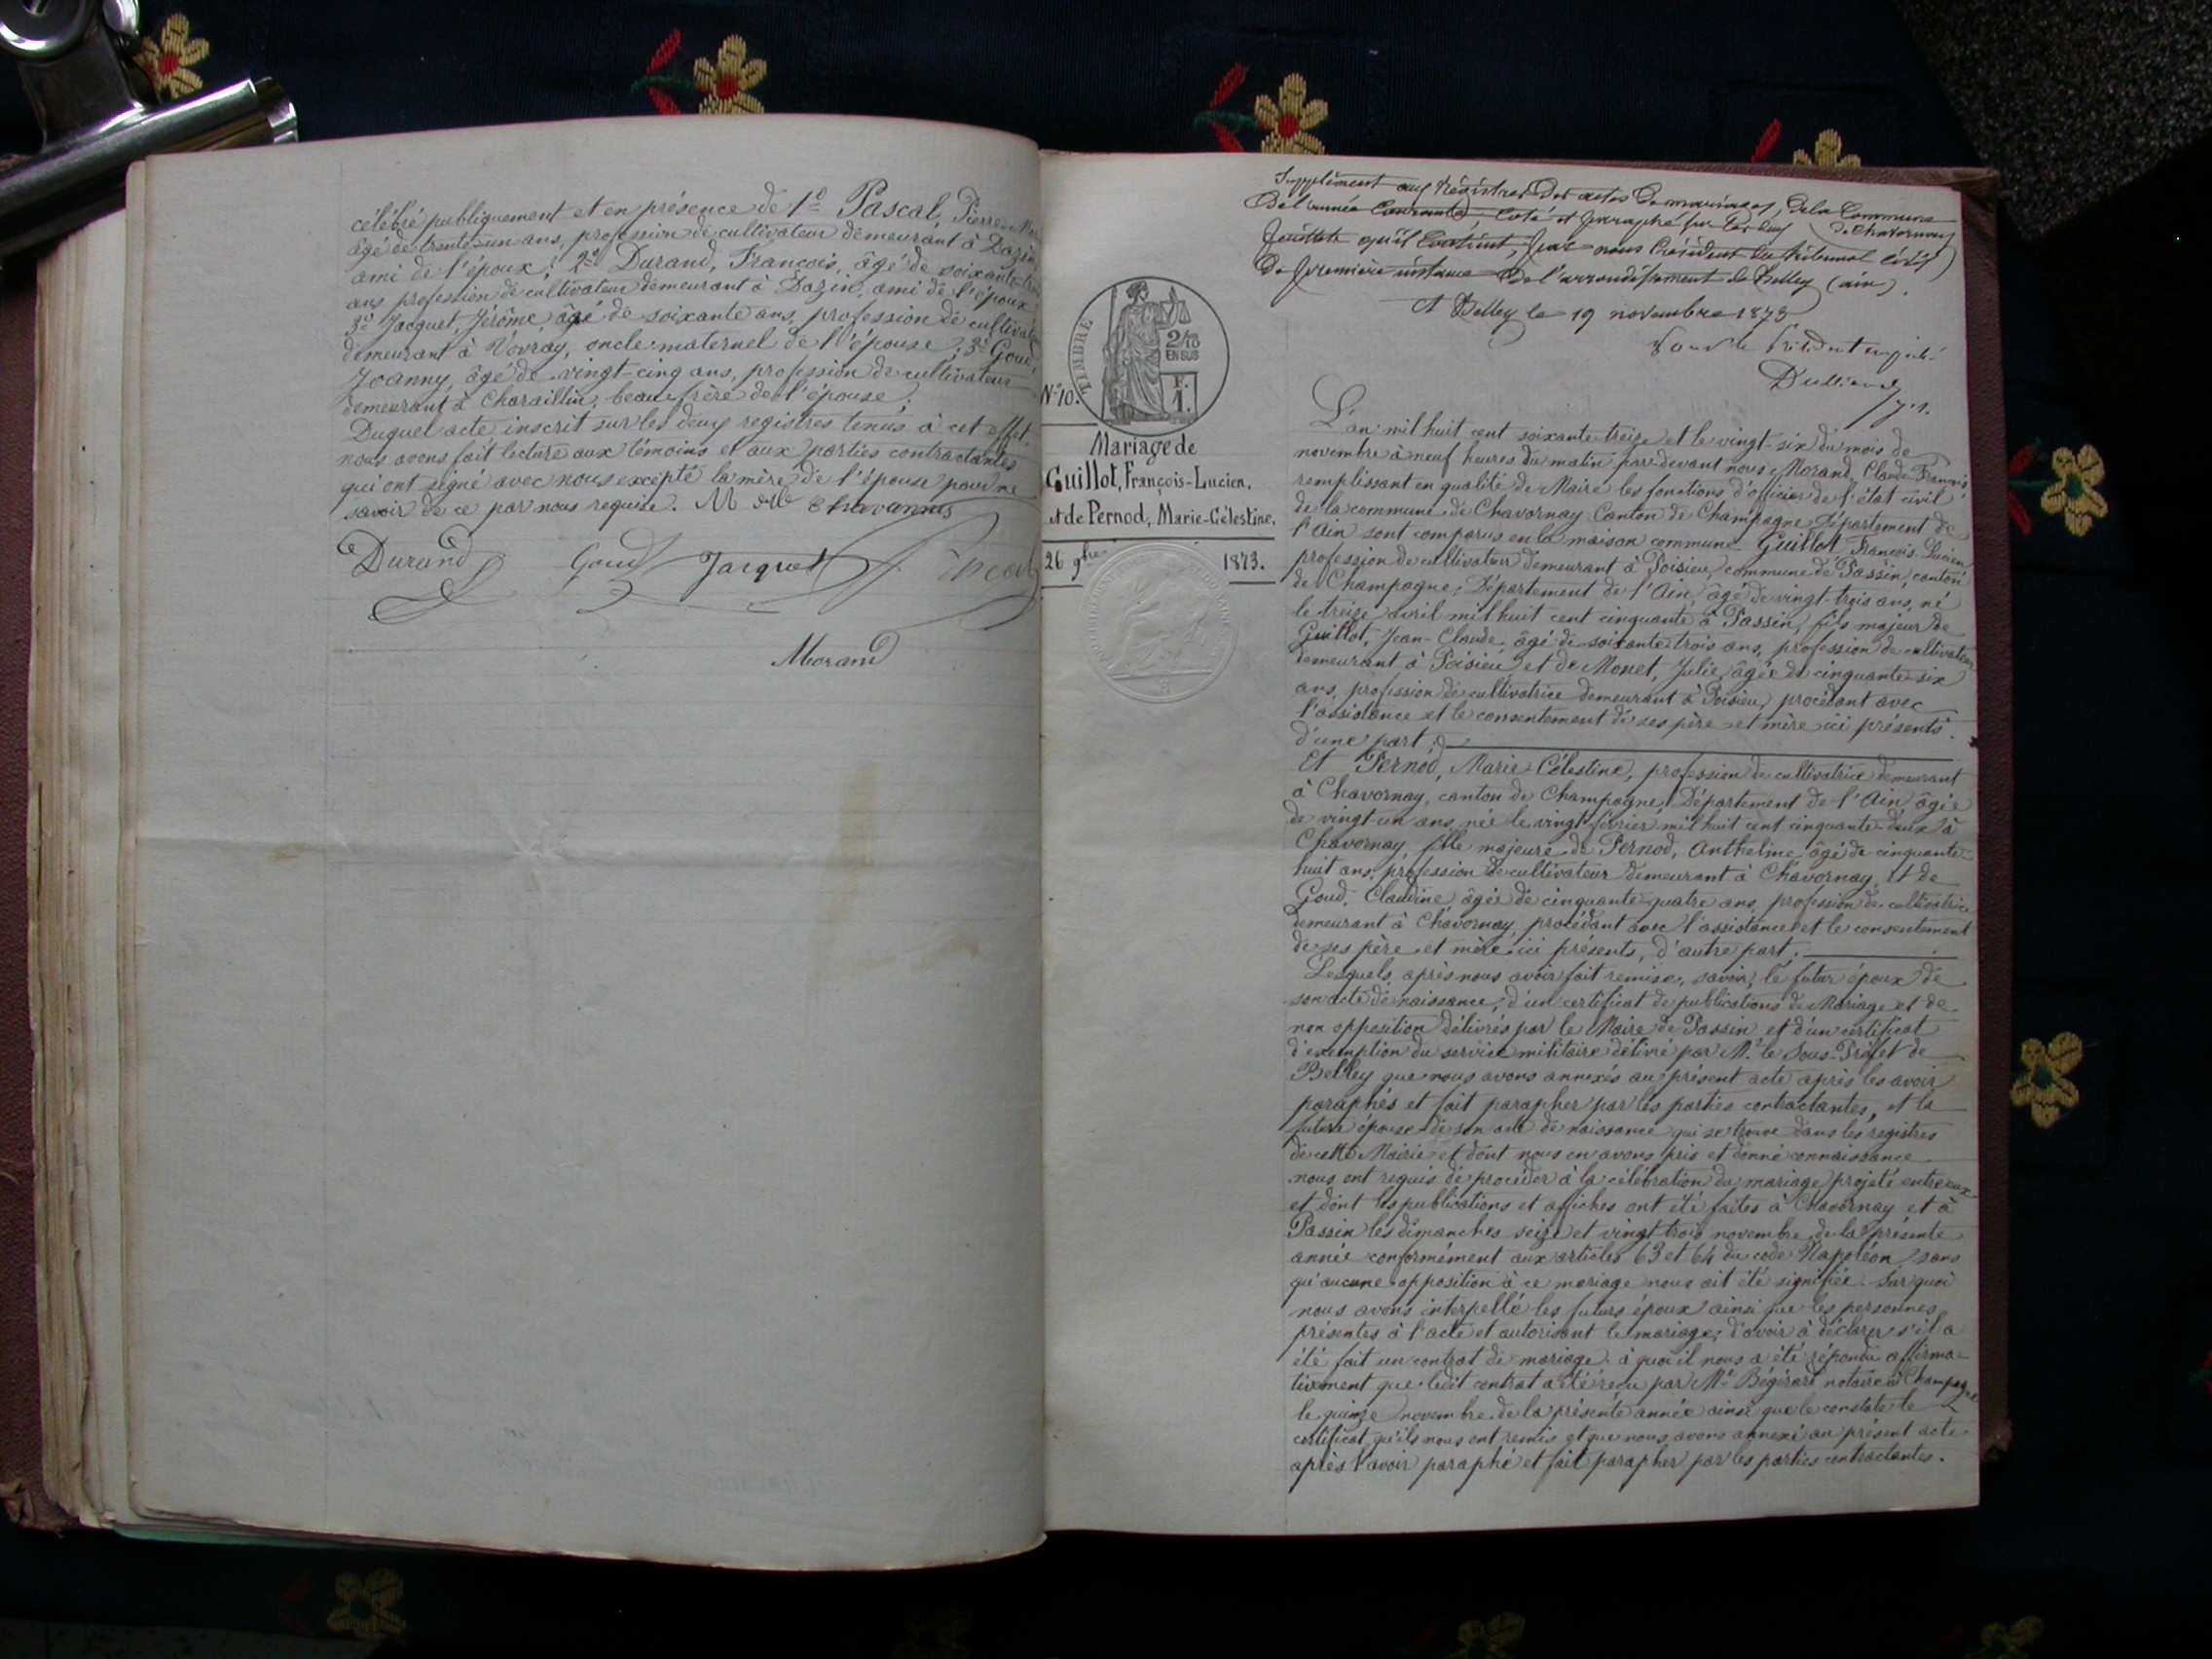 célébré publiquement et en présence de 1º Pascal, Pierre
âgé de trente-un ans, profession de cultivateur demeurant à Dazin
ami de l'époux; 2º Durand, François, âgé de soixante-
ans profession de cultivateur demeurant à Dazin, ami de l'époux
3º Jacquet, Jérôme, âgé de soixante ans, profession de cultivateur
demeurant à Vovray, oncle maternel de l'épouse; 3º Goud,
Joanny, âgé de vingt-cinq ans, profession de cultivateur
demeurant à Charaillin, beau-frère de l'épouse;
Duquel acte inscrit sur les deux registres tenus à cet effet
nous avons fait lecture aux témoins et aux parties contractantes
qui ont signé avec nous excepté la mère de l'épouse pour ne
savoir de ce par nous requise. Chavannes
Durand Goud Jacquet Pascal
Morand
TIMBRE
2/10
EN SUS
F.
1.
Nº 10.
Mariage de
Guillot, François-Lucien,
et de Pernod, Marie-Célestine.
26 9bre 1873.
Supplément aux Régistres des actes de mariages de la Commune
de Chavornay
de l'année courante, coté et paraphé sur les deux
feuillets qu'il contient, par nous Président du tribunal civil
de première instance de l'arrondissement de Belley (ain).
A Belley le 19 novembre 1873
Pour le Président empêché
L'an mil huit cent soixante-treize et le vingt-six du mois de
novembre à neuf heures du matin par-devant nous Morand, Claude-François
remplissant en qualité de Maire les fonctions d'officier de l'état civil
de la commune de Chavornay Canton de Champagne Département de
l'Ain sont comparus en la maison commune Guillot, François-Lucien,
profession de cultivateur demeurant à Poisieu, commune de Passin, canton
de Champagne, Département de l'Ain, âgé de vingt-trois ans, né
le treize avril mil huit cent cinquante à Passin, fils majeur de
Guillot, Jean-Claude, âgé de soixante trois ans, profession de cultivateur
demeurant à Poisieu et de Monet, Julie, âgée de cinquante-six
ans, profession de cultivatrice demeurant à Poisieu, procédant avec
l'assistance et le consentement de ses père et mère ici présents
d'une part;
Et Pernod, Marie Célestine, profession de cultivatrice demeurant
à Chavornay, canton de Champagne, Département de l'Ain, âgée
de vingt-un ans, née le vingt février mil huit cent cinquante-deux à
Chavornay, fille majeure de Pernod, Anthelme, âgé de cinquante-
huit ans, profession de cultivateur demeurant à Chavornay, et de
Goud, Claudine, âgée de cinquante-quatre ans, profession de cultivatrice
demeurant à Chavornay, procédant avec l'assistance et le consentement
de ses père et mère ici présents, d'autre part.
Lesquels, après nous avoir fait remise, savoir, le futur époux de
son acte de naissance, d'un certificat de publications de Mariage et de
non opposition délivrés par le Maire de Passin et d'un certificat
d'exemption du service militaire délivré par Mr le Sous-Préfet de
Belley que nous avons annexés au présent acte après les avoir
paraphés et fait parapher par les parties contractantes, et la
future épouse de son acte de naissance qui se trouve dans les registres
de cette Mairie et dont nous en avons pris et donné connaissance
nous ont requis de procéder à la célébration du mariage projeté entre eux
et dont les publications et affiches ont été faites à Chavornay et à
Passin les dimanches seize et vingt-trois novembre de la présente
année conformément aux articles 63 et 64 du code Napoléon, sans
qu'aucune opposition à ce mariage nous ait été signifiée. Sur quoi
nous avons interpellé les futurs époux ainsi que les personnes
présentes à l'acte et autorisant le mariage, d'avoir à déclarer s'il a
été fait un contrat de mariage à quoi il nous a été répondu affirma-
tivement que ledit contrat a été reçu par Me notaire à Champagne
le quinze novembre de la présente année ainsi que le constate le
certificat qu'ils nous ont remis et que nous avons annexé au présent acte
après l'avoir paraphé et fait parapher par les parties contractantes.